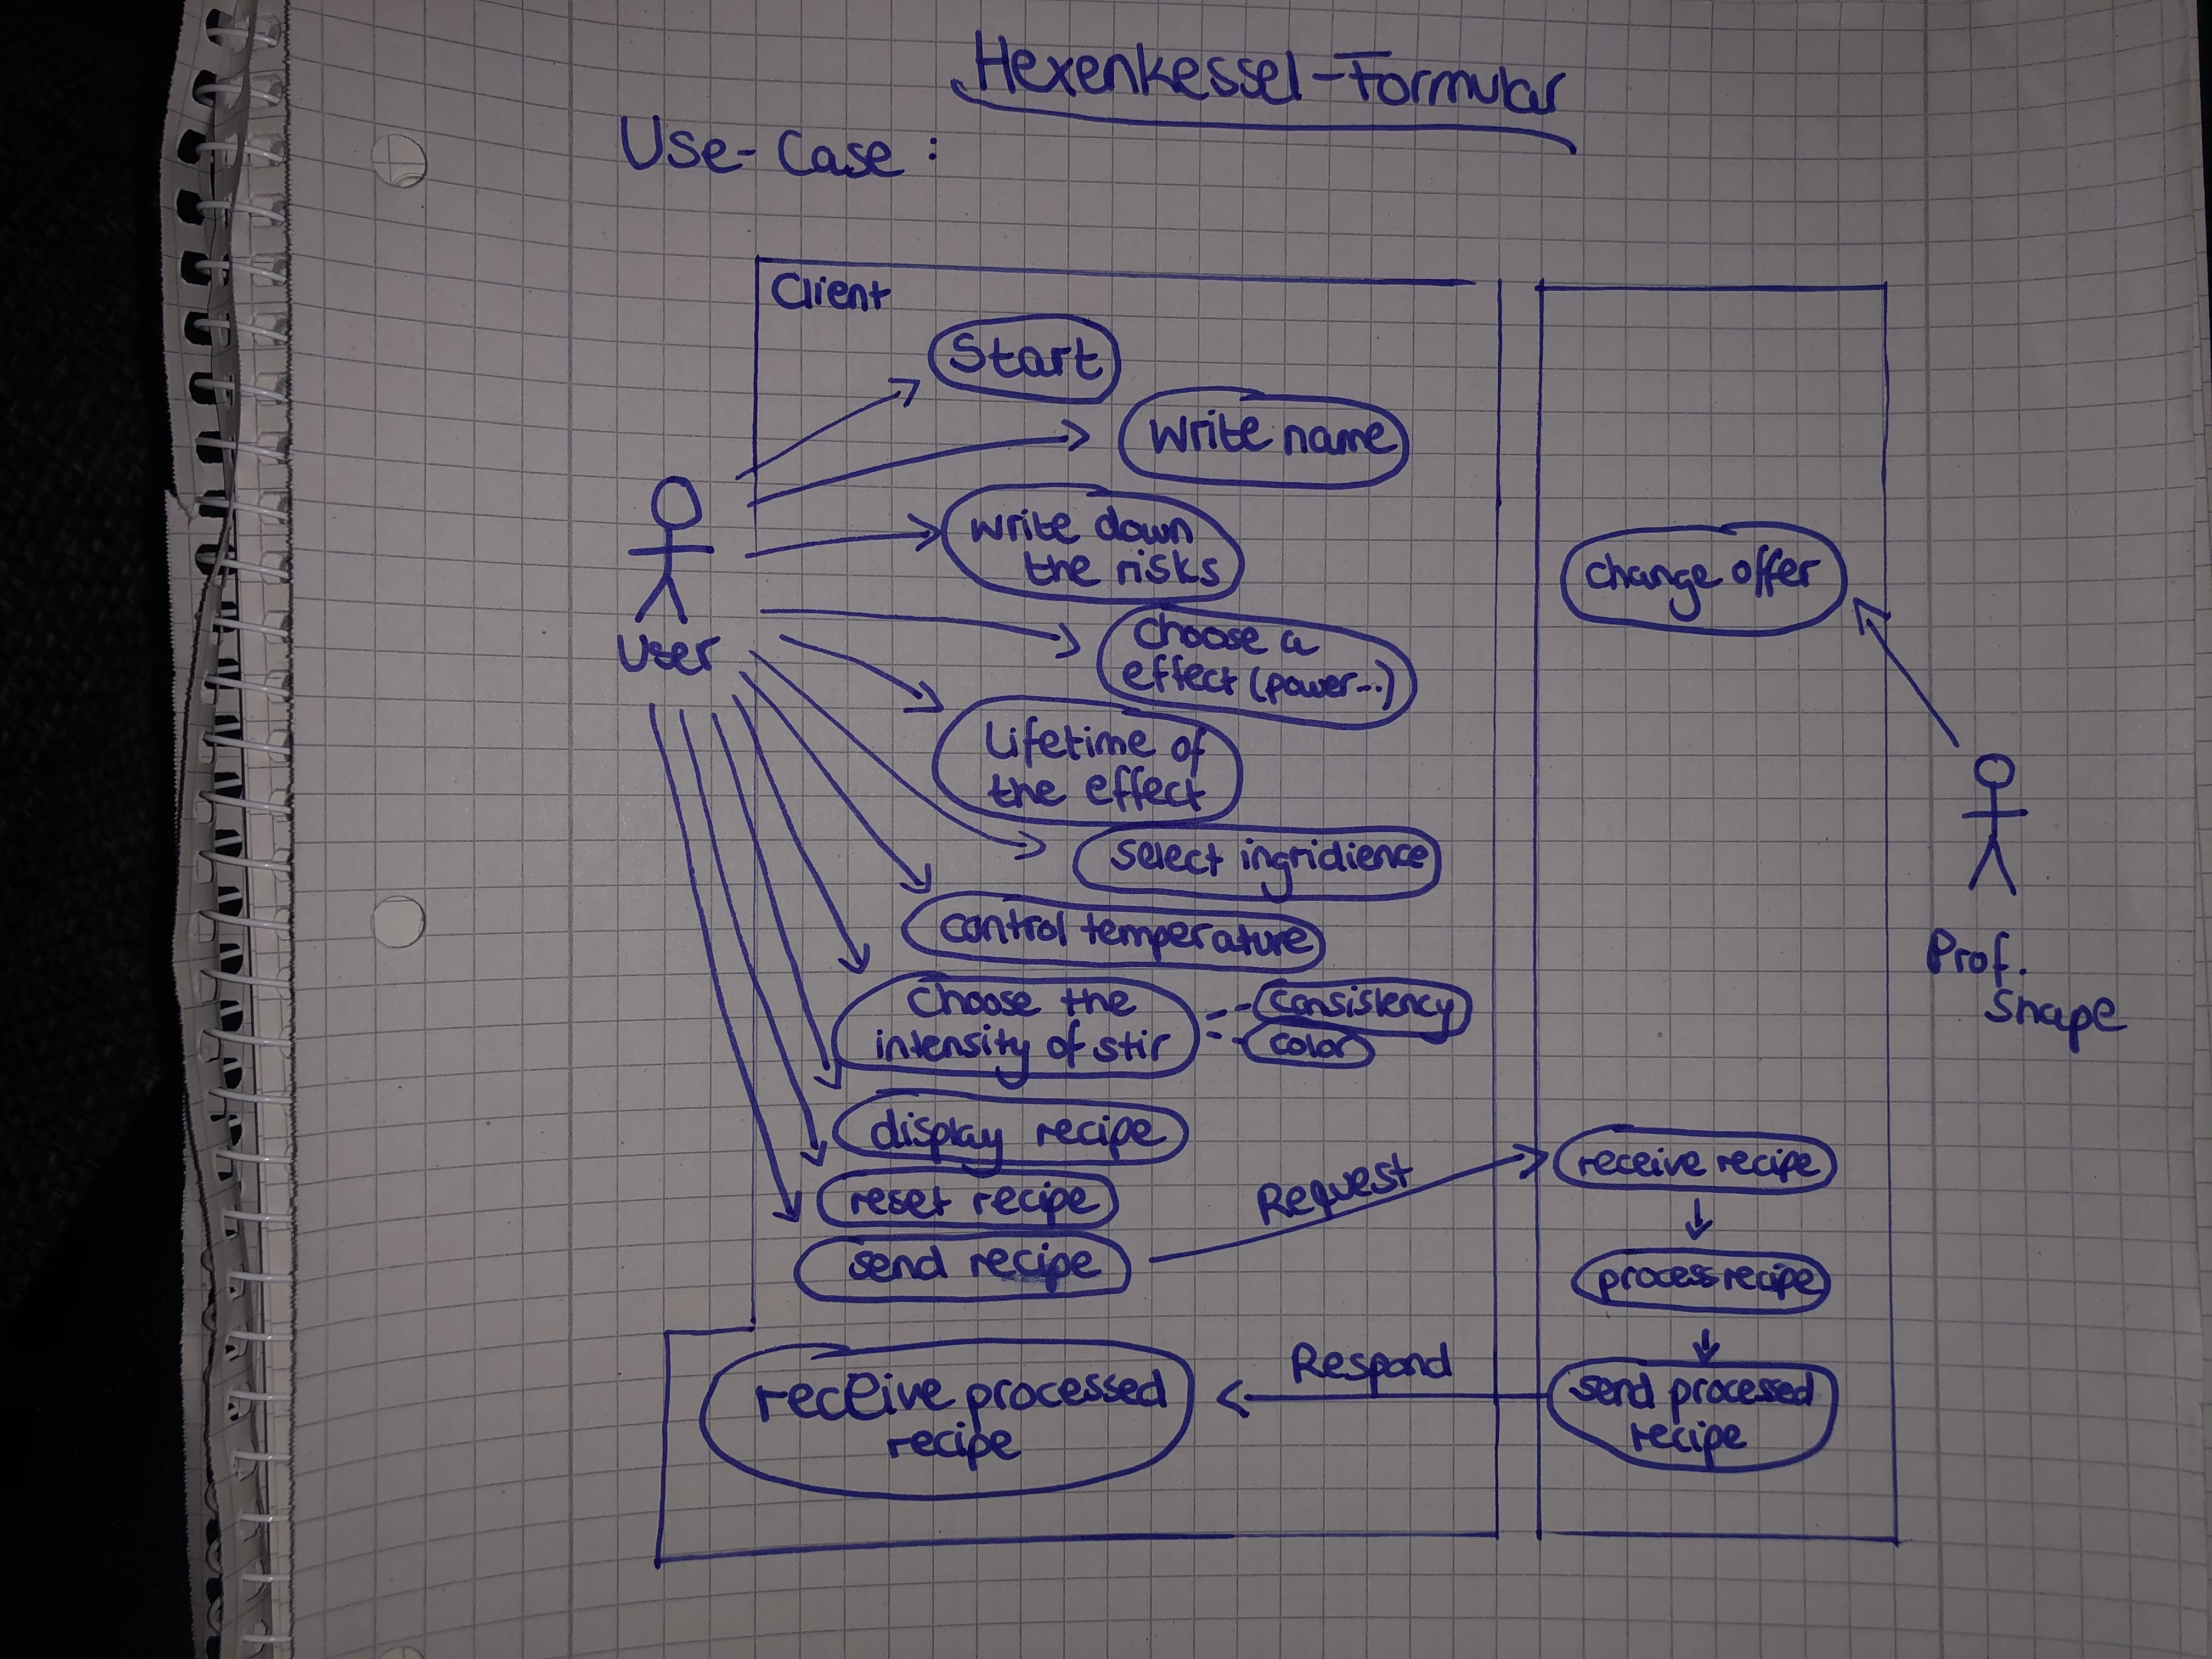 Use-Case:
Hexenkessel-Formular
Client
User
Start
Write name
Write down
the risks
Choose a
effect (power...)
Lifetime of
the effect
Select ingridience
control temperature
Choose the
intensity of stir
Consistency
color
display recipe
reset recipe
send recipe
receive processed
recipe
Request
Respond
change offer
receive recipe
process recipe
send processed
recipe
Prof.
Snape